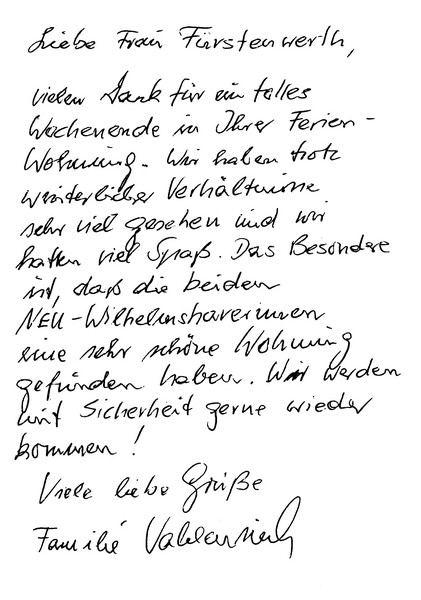 Liebe Frau Fürstenwerth,
vielen Dank für ein tolles
Wochenende in Ihrer Ferien-
Wohnung. Wir haben trotz
winterlicher Verhältnisse
sehr viel gesehen und wir
hatten viel Spaß. Das Besondere
ist, daß die beiden
NEU-Wilhelmshaverinnen
eine sehr schöne Wohnung
gefunden haben. Wir werden
mit Sicherheit gerne wieder
kommen!
Viele liebe Grüße
Familie